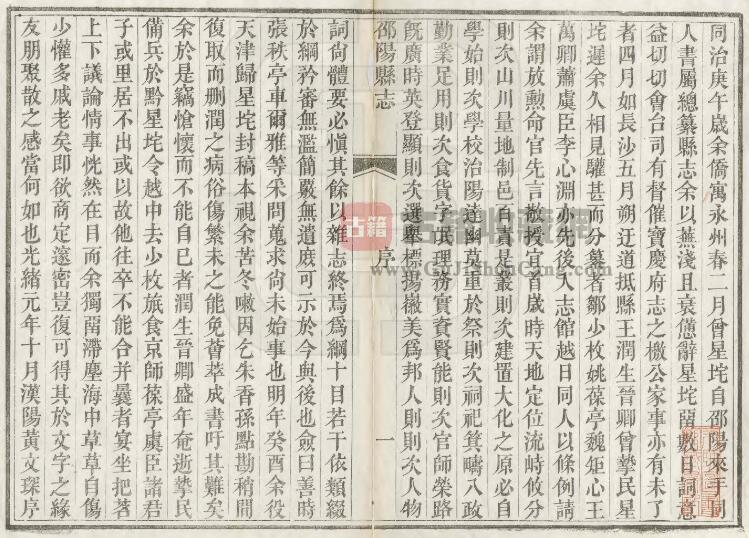 同治庚午歲余僑寓永州春二月曾星垞自邵陽來手同
人書屬總纂縣志余以蕪淺且衰憊辭星垞惡數日詞意
益切切會台司有督催寶慶府志之檄公家事亦有未了
者四月如長沙五月朔迂道抵縣王潤生晉卿曾摯民星
垞遲余久相見驩甚而分纂者鄒少枚姚葆亭魏矩心王
萬卿蕭虞臣李心淵亦先後入志館越日同人以條例請
余謂放勲命官先言敬授宜首歲時天地定位流峙攸分
則次山川量地制邑百責是叢則次建置大化之原必自
學始則次學校治陽達幽莫重於祭則次祠祀箕疇八政
勤業足用則次食貨字氓理務實資賢能則次官師榮路
旣廣時英登顯則次選舉標揚徽美爲邦人則則次人物
邵陽縣志
序
一
詞尙體要必愼其餘以雜志終焉爲綱十目若干依類綴
於綱矜審無濫簡嚴無遺庶可示於今與後也僉曰善時
張秩亭車爾雅等采問蒐求尙未始事也明年癸酉余役
天津歸星垞封稿本視余苦冬嗽因乞朱香孫點勘稍間
復取而刪潤之病俗傷繁未之能免薈萃成書吁其難矣
余於是竊愴懷而不能自已者潤生晉卿盛年奄逝摯民
備兵於黔星垞令越中去少枚旅食京師葆亭虞臣諸君
子或里居不出或以故他往卒不能合并曩者宴坐把茗
上下議論情事恍然在目而余獨畱滯塵海中草草自傷
少懽多戚老矣卽欲商定邃密豈復可得其於文字之緣
友朋聚散之感當何如也光緒元年十月漢陽黃文琛序
古籍
古籍收藏网
www.GuJiShouCang.com